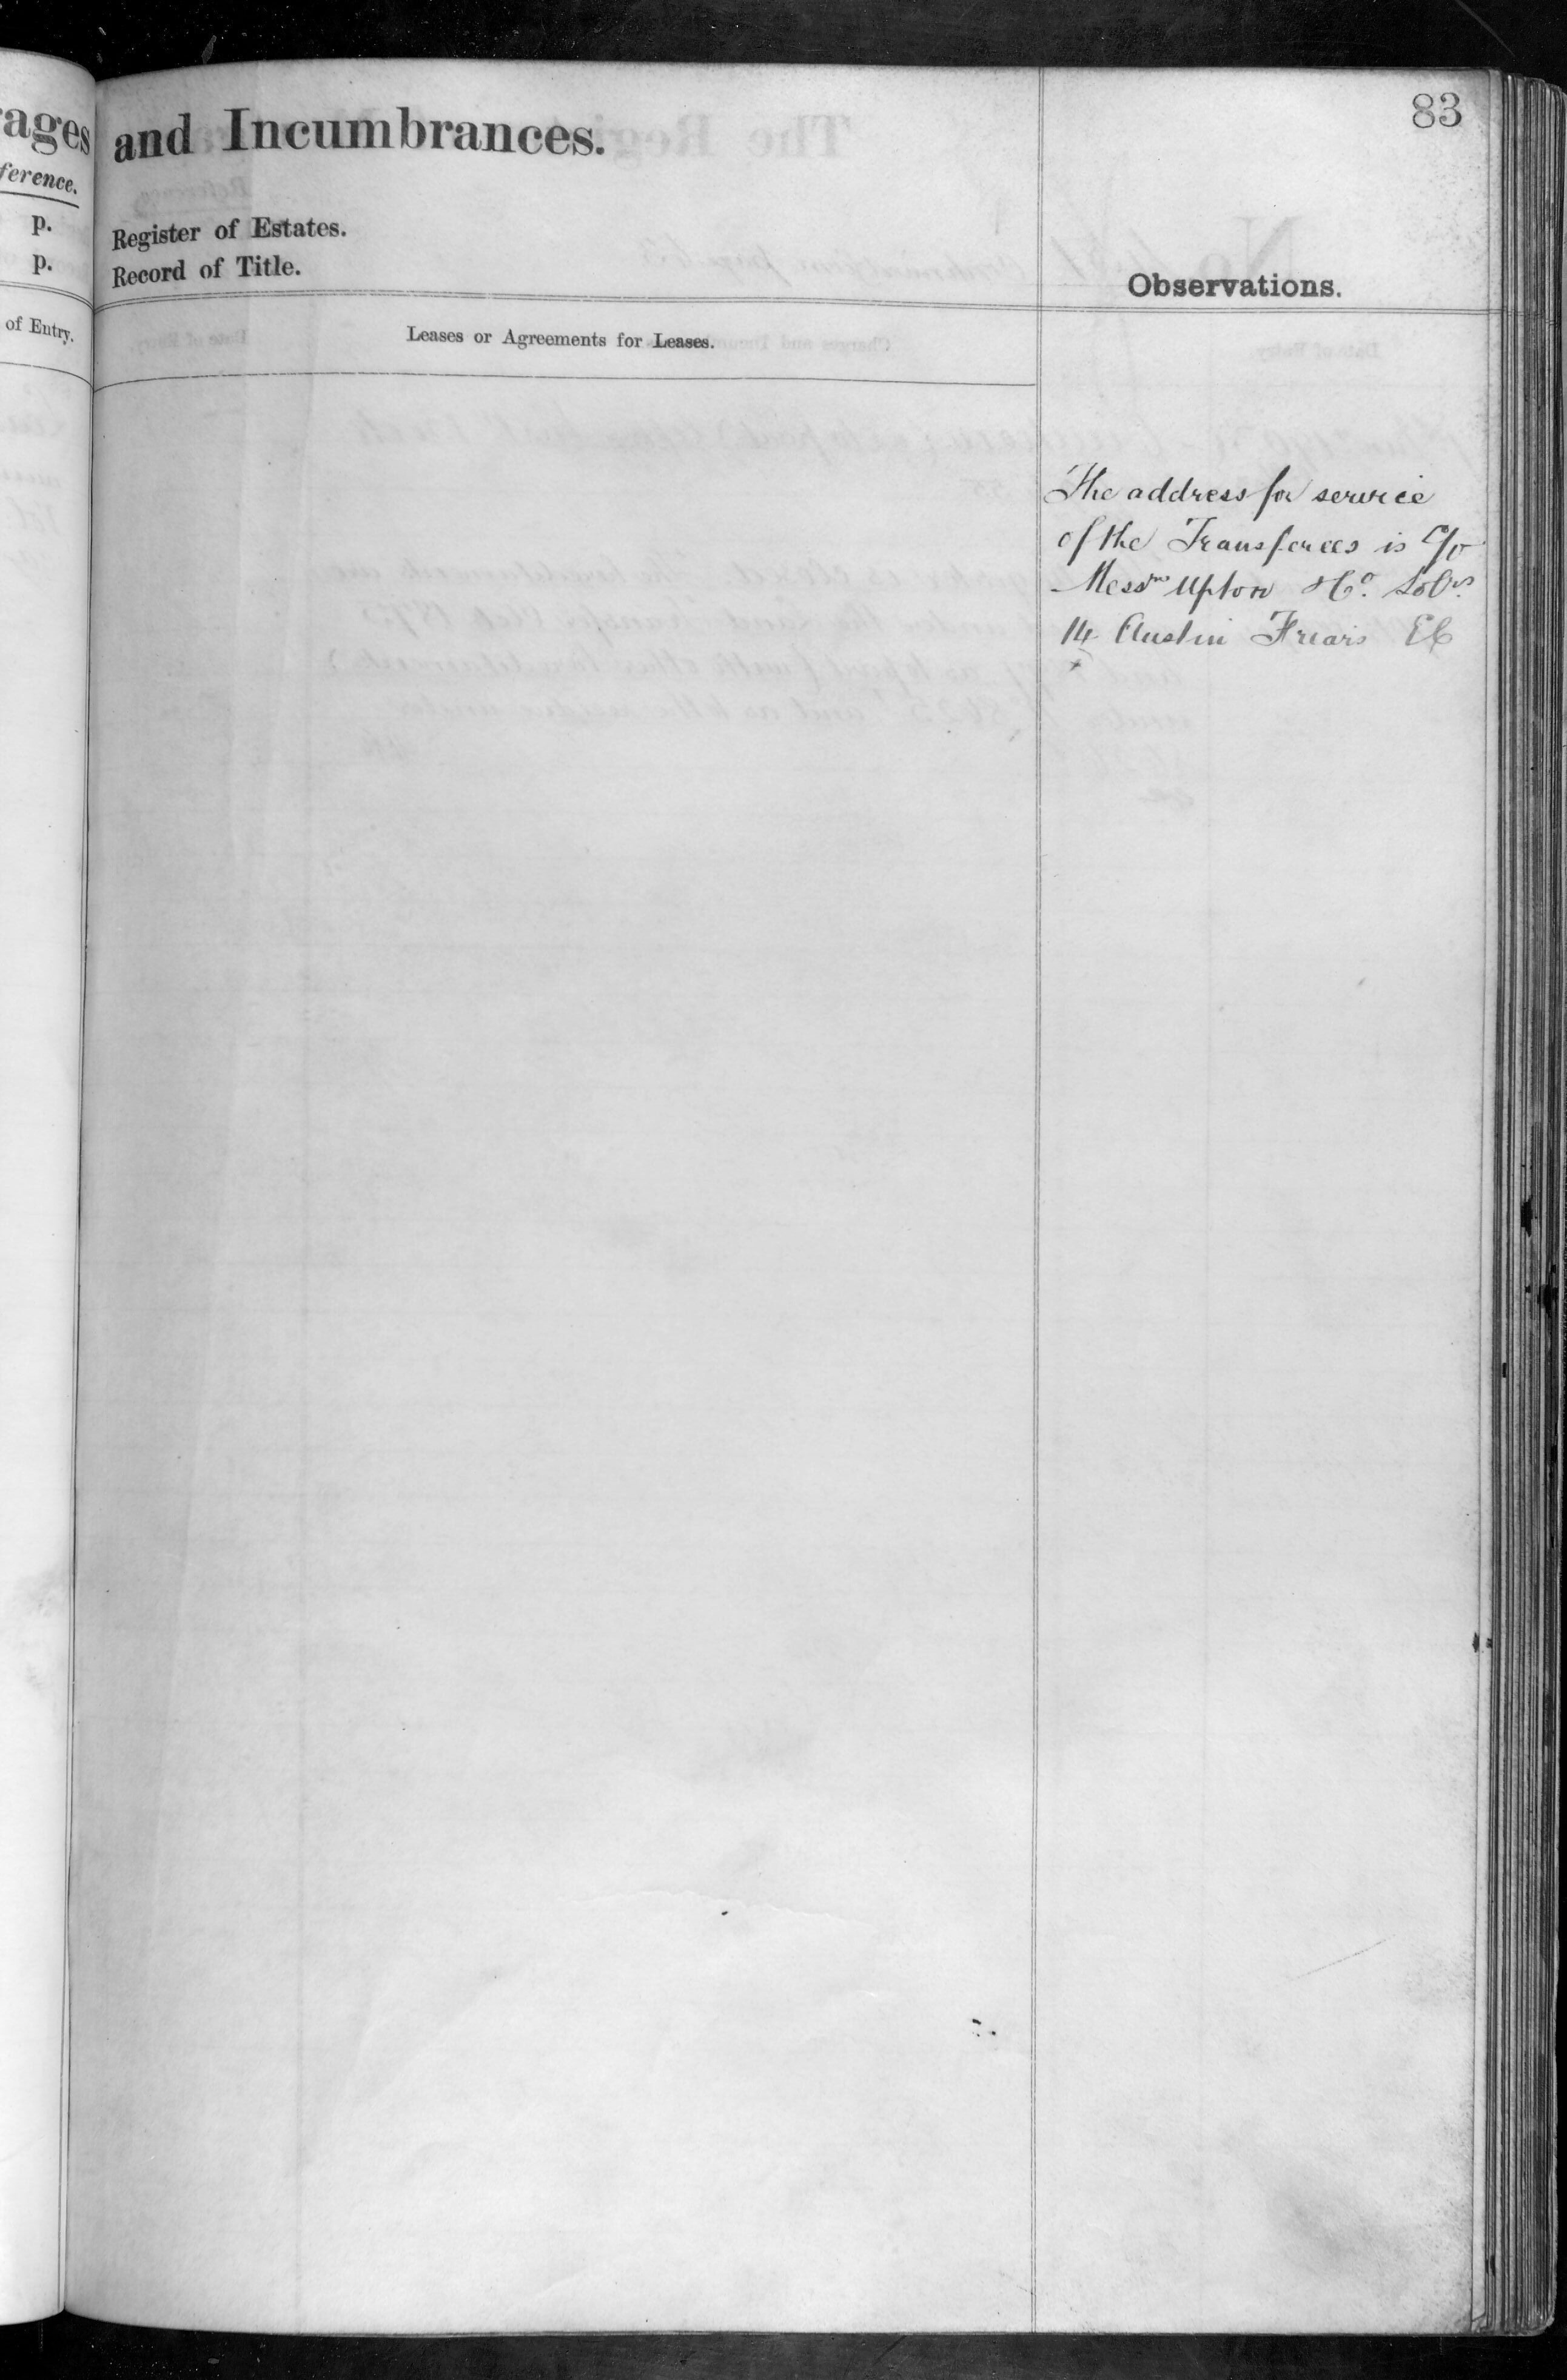 83
ages
and Incumbrances.
ference.
p.
Register of Estates.
p.
Record of Title.
Observations.
of Entry.
Leases or Agreements for Leases.
The address for service
of the Transferees is c/o
Messrs Upton & Co. Solrs.
14 Austin Friars EC